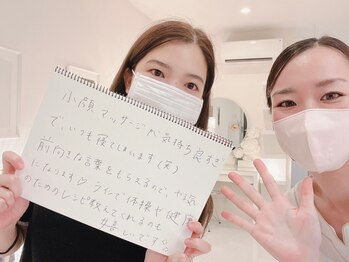 小顔マッサージが気持ち良すぎ
で、いつも寝てしまいます(笑)
前向きな言葉をもらえるので、やる気
になります♡ラインで体操や健康
のためのレシピ教えてくれるのも
嬉しいです